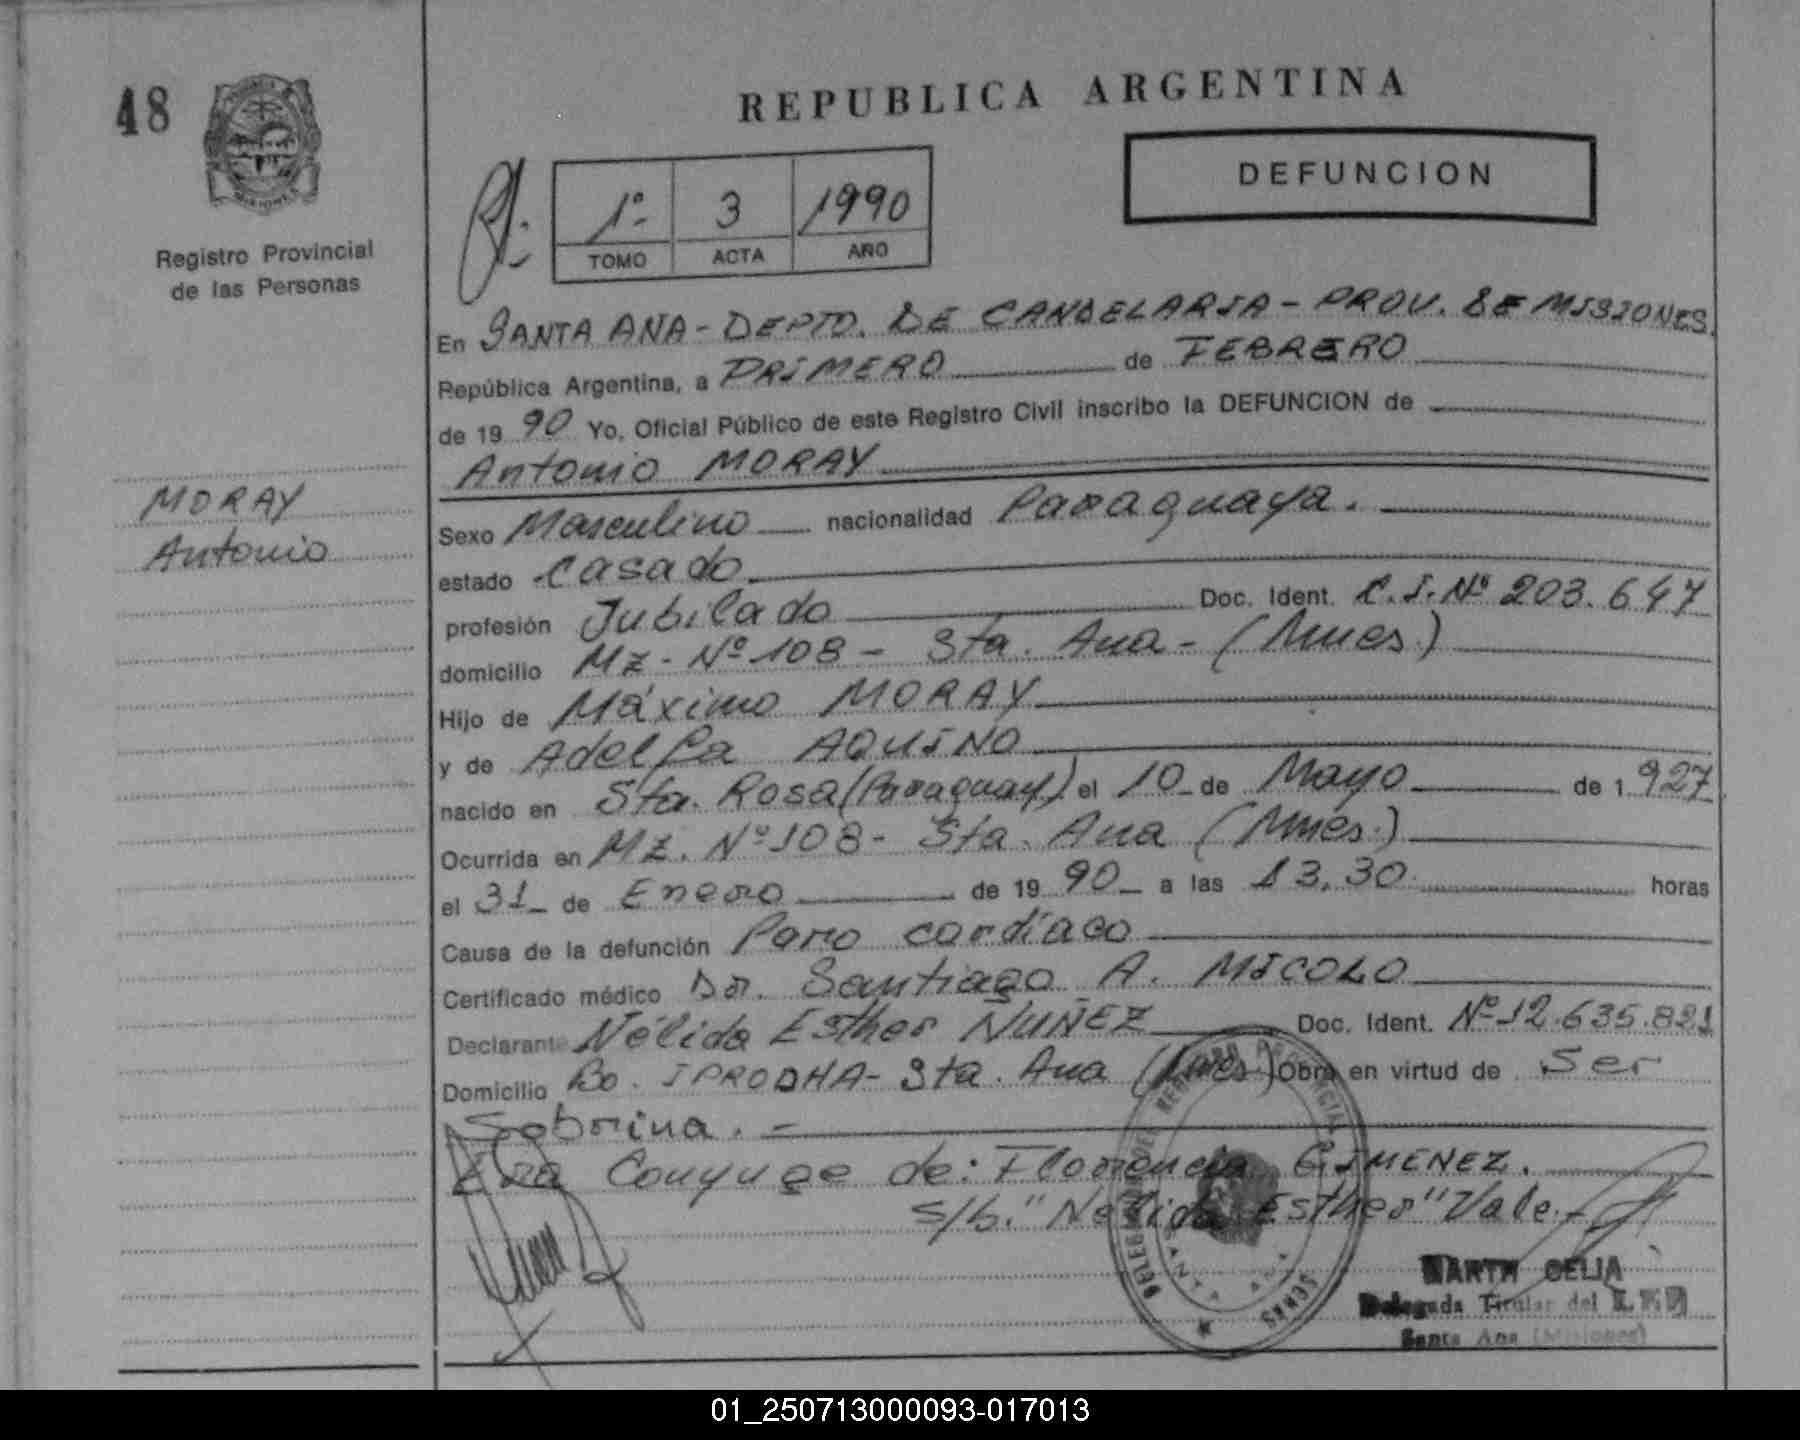 48
REPUBLICA ARGENTINA
DEFUNCION
MISIONES
Registro Provincial
de las Personas
1º- 3 1990
TOMO ACTA AÑO
En SANTA ANA - DEPTO. DE CANDELARIA - PROV. DE MISIONES.
República Argentina, a PRIMERO de FEBRERO
de 19 90 Yo, Oficial Público de este Registro Civil inscribo la DEFUNCION de
Antonio MORAY
MORAY
Antonio
Sexo Masculino nacionalidad Paraguaya.
estado Casado
profesión Jubilado Doc. Ident. C.I.Nº 203.647
domicilio Mz - Nº 108 - Sta. Ana - (Mnes.)
Hijo de Máximo MORAY
y de Adelfa AQUINO
nacido en Sta. Rosa (Paraguay) el 10 de Mayo de 1 927
Ocurrida en Mz. Nº 108 - Sta. Ana (Mnes.)
el 31 de Enero de 19 90 a las 13,30 horas
Causa de la defunción Paro cardíaco
Certificado médico Dr. Santiago A. MICOLO
Declarante Nélida Esther NUÑEZ Doc. Ident. Nº 12.635.821
Domicilio Bo. IPRODHA - Sta. Ana (Mnes.) Obra en virtud de Ser
Sobrina. -
Era Conyuge de: Florencia GIMENEZ.
s/b. "Nélida Esther" Vale.-
SANTA ANA
CELIA
Delegada Titular del
Santa Ana (Misiones)
01_250713000093-017013